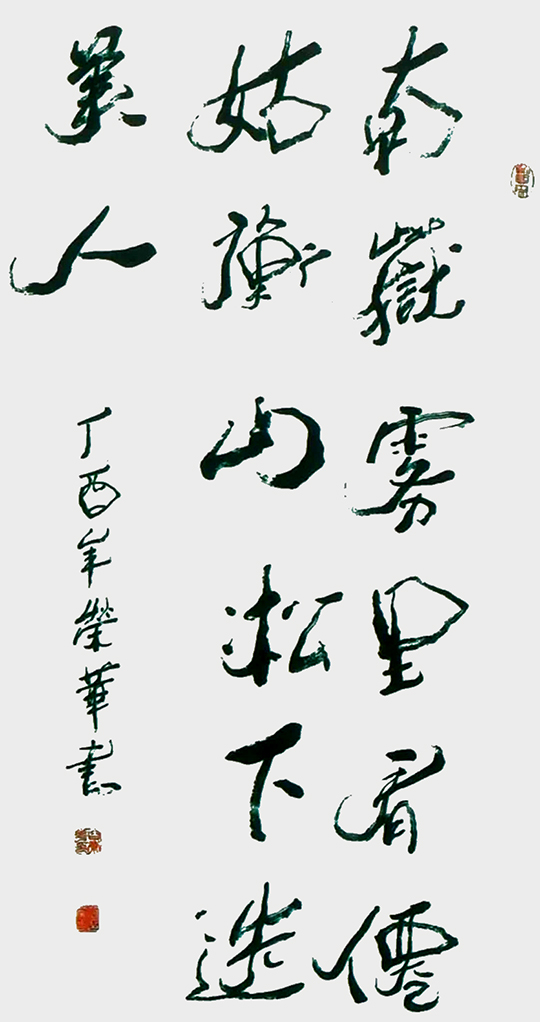 南嶽雾里看僊
姑衡山松下
美人
丁酉年榮華書